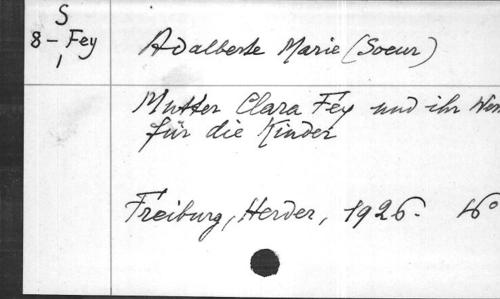 S
8 - Fey
1
Adalberte Marie (Soeur)
Mutter Clara Fey und ihr
für die Kinder
Freiburg, Herder, 1926. 16°